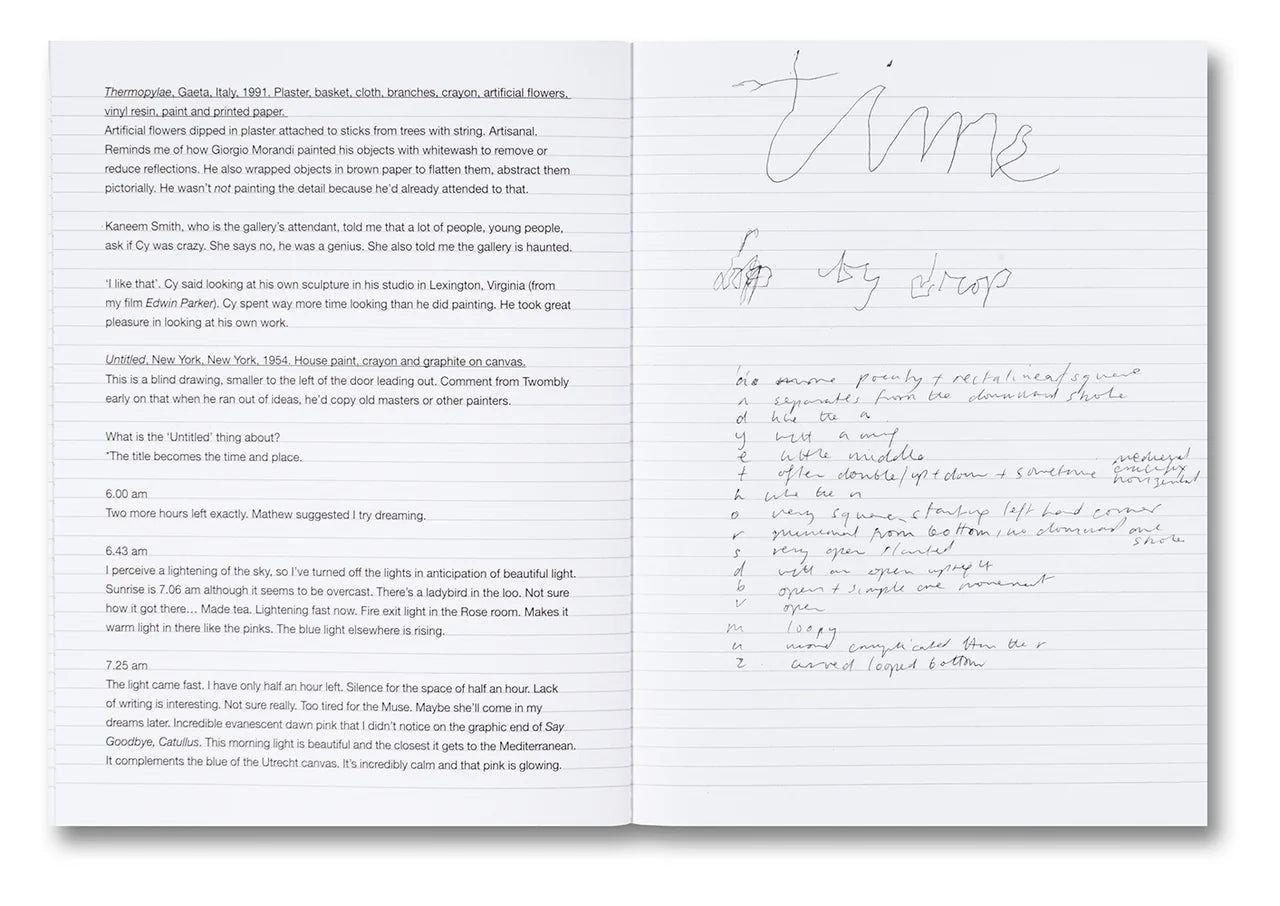 Thermopylae, Gaeta, Italy, 1991. Plaster, basket, cloth, branches, crayon, artificial flowers,
vinyl resin, paint and printed paper.
Artificial flowers dipped in plaster attached to sticks from trees with string. Artisanal.
Reminds me of how Giorgio Morandi painted his objects with whitewash to remove or
reduce reflections. He also wrapped objects in brown paper to flatten them, abstract them
pictorially. He wasn't not painting the detail because he'd already attended to that.
Kaneem Smith, who is the gallery's attendant, told me that a lot of people, young people,
ask if Cy was crazy. She says no, he was a genius. She also told me the gallery is haunted.
'I like that'. Cy said looking at his own sculpture in his studio in Lexington, Virginia (from
my film Edwin Parker). Cy spent way more time looking than he did painting. He took great
pleasure in looking at his own work.
Untitled, New York, New York, 1954. House paint, crayon and graphite on canvas.
This is a blind drawing, smaller to the left of the door leading out. Comment from Twombly
early on that when he ran out of ideas, he'd copy old masters or other painters.
What is the 'Untitled' thing about?
*The title becomes the time and place.
6.00 am
Two more hours left exactly. Mathew suggested I try dreaming.
6.43 am
I perceive a lightening of the sky, so I've turned off the lights in anticipation of beautiful light.
Sunrise is 7.06 am although it seems to be overcast. There's a ladybird in the loo. Not sure
how it got there… Made tea. Lightening fast now. Fire exit light in the Rose room. Makes it
warm light in there like the pinks. The blue light elsewhere is rising.
7.25 am
The light came fast. I have only half an hour left. Silence for the space of half an hour. Lack
of writing is interesting. Not sure really. Too tired for the Muse. Maybe she'll come in my
dreams later. Incredible evanescent dawn pink that I didn't notice on the graphic end of Say
Goodbye, Catullus. This morning light is beautiful and the closest it gets to the Mediterranean.
It complements the blue of the Utrecht canvas. It's incredibly calm and that pink is glowing.
time
by drop
more pointy + rectalinear/square
n separates from the downward stroke
d like the a
y with a
e little middle
t often double/up + down + sometime medieval crucifix horizontal
h like the n
o very square, starting left hand corner
r from bottom, no downward stroke
s very open slanted
d with an open upright
b open + simple one movement
v open
m loopy
u more complicated than the r
z curved looped bottom